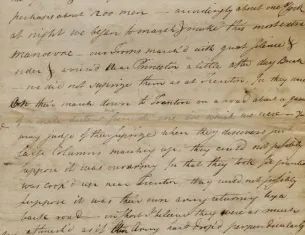 perhaps about 200 men — accordingly about one o'Clock
at night we began to march & make this most extra
manoevre — our troops march'd with great silence &
order & arriv'd near Princeton a little after day break
— we did not surprize them as at Trenton, for they were
on their march down to Trenton on a road about a quarter
may judge of their surprize when they discover'd such
large Columns marching up. they could not possibly
suppose it was our army for that they took for granted
was coop'd up near Trenton. they could not possibly
suppose it was their own army returning by a
back road — in short I believe they were as much
astonish'd as if an army had drop'd perpendicularly